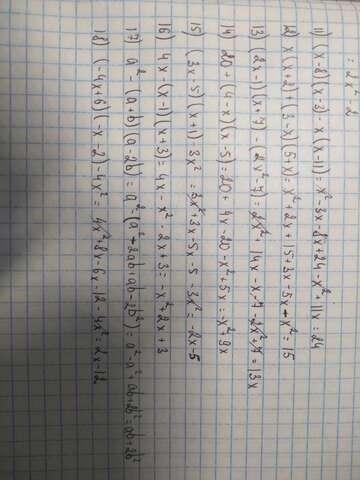 = 2x² - 2
11) (x-8)(x-3) - x(x-11) = x² - 3x - 8x + 24 - x² + 11x = 24
12) x(x+2)+(3-x)(5+x) = x² + 2x + 15 + 3x - 5x - x² = 15
13) (2x-1)(x+7) - (2x²-7) = 2x² + 14x - x - 7 - 2x² + 7 = 13x
14) 20 + (4-x)(x-5) = 20 + 4x - 20 - x² + 5x = -x² + 9x
15) (3x-5)(x+1) - 3x² = 3x² + 3x - 5x - 5 - 3x² = -2x - 5
16) 4x - (x-1)(x+3) = 4x - x² - 2x + 3 = -x² + 2x + 3
17) a² - (a+b)(a-2b) = a² - (a² - 2ab + ab - 2b²) = a² - a² + ab + 2b² = ab + 2b²
18) (-4x+6)(-x-2) - 4x² = 4x² + 8x - 6x - 12 - 4x² = 2x - 12